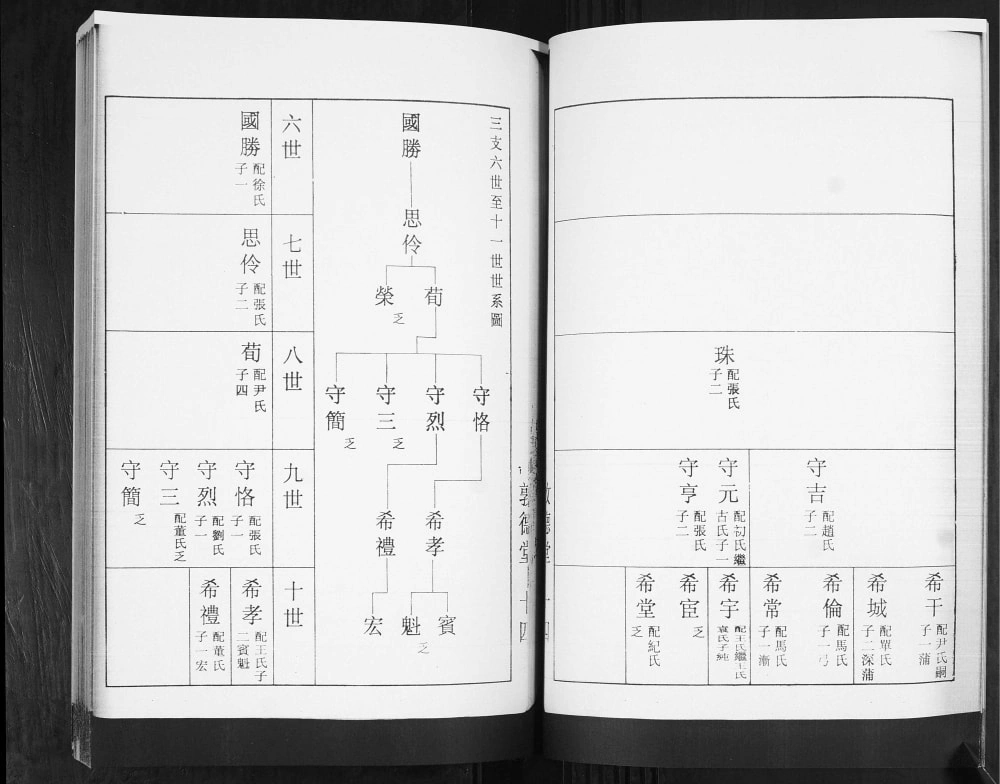 珠 配張氏 子二
守吉 配趙氏 子二
守元 配初氏繼古氏子一
守亨 配張氏 子二
希干 配尹氏嗣子一蒲
希城 配單氏 子二深蒲
希倫 配馬氏 子一弓
希常 配馬氏 子一漸
希宇 配王氏繼王氏袁氏子純
希宦 乏
希堂 配紀氏 乏
德堂
三支六世至十一世世系圖
國勝
思伶
荀
榮 乏
守恪
守烈
守三 乏
守簡 乏
希孝
希禮
賓
魁 乏
宏
六世
國勝 配徐氏 子一
七世
思伶 配張氏 子二
八世
荀 配尹氏 子四
九世
守恪 配張氏 子一
守烈 配劉氏 子一
守三 配董氏乏
守簡 乏
十世
希孝 配王氏子二賓魁
希禮 配董氏 子一宏